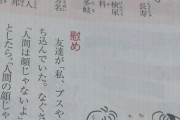 長寿
検尿
料
慰め
友達が「私、ブスや
ち込んでいた。なぐさ
「人間は顔じゃないよ
としたら、「人間の顔じゃ